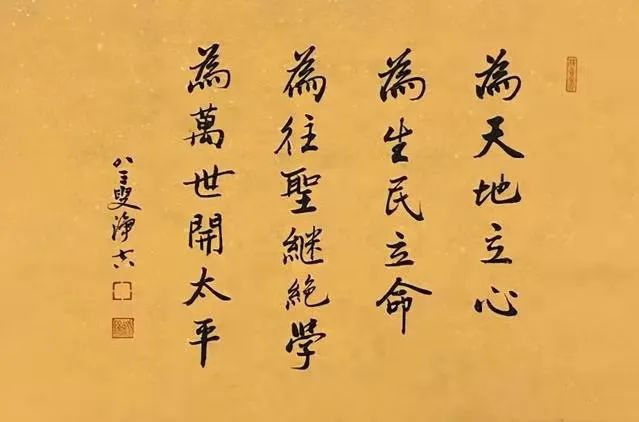 為天地立心
為生民立命
為往聖継絶學
為萬世開太平
叟淨空